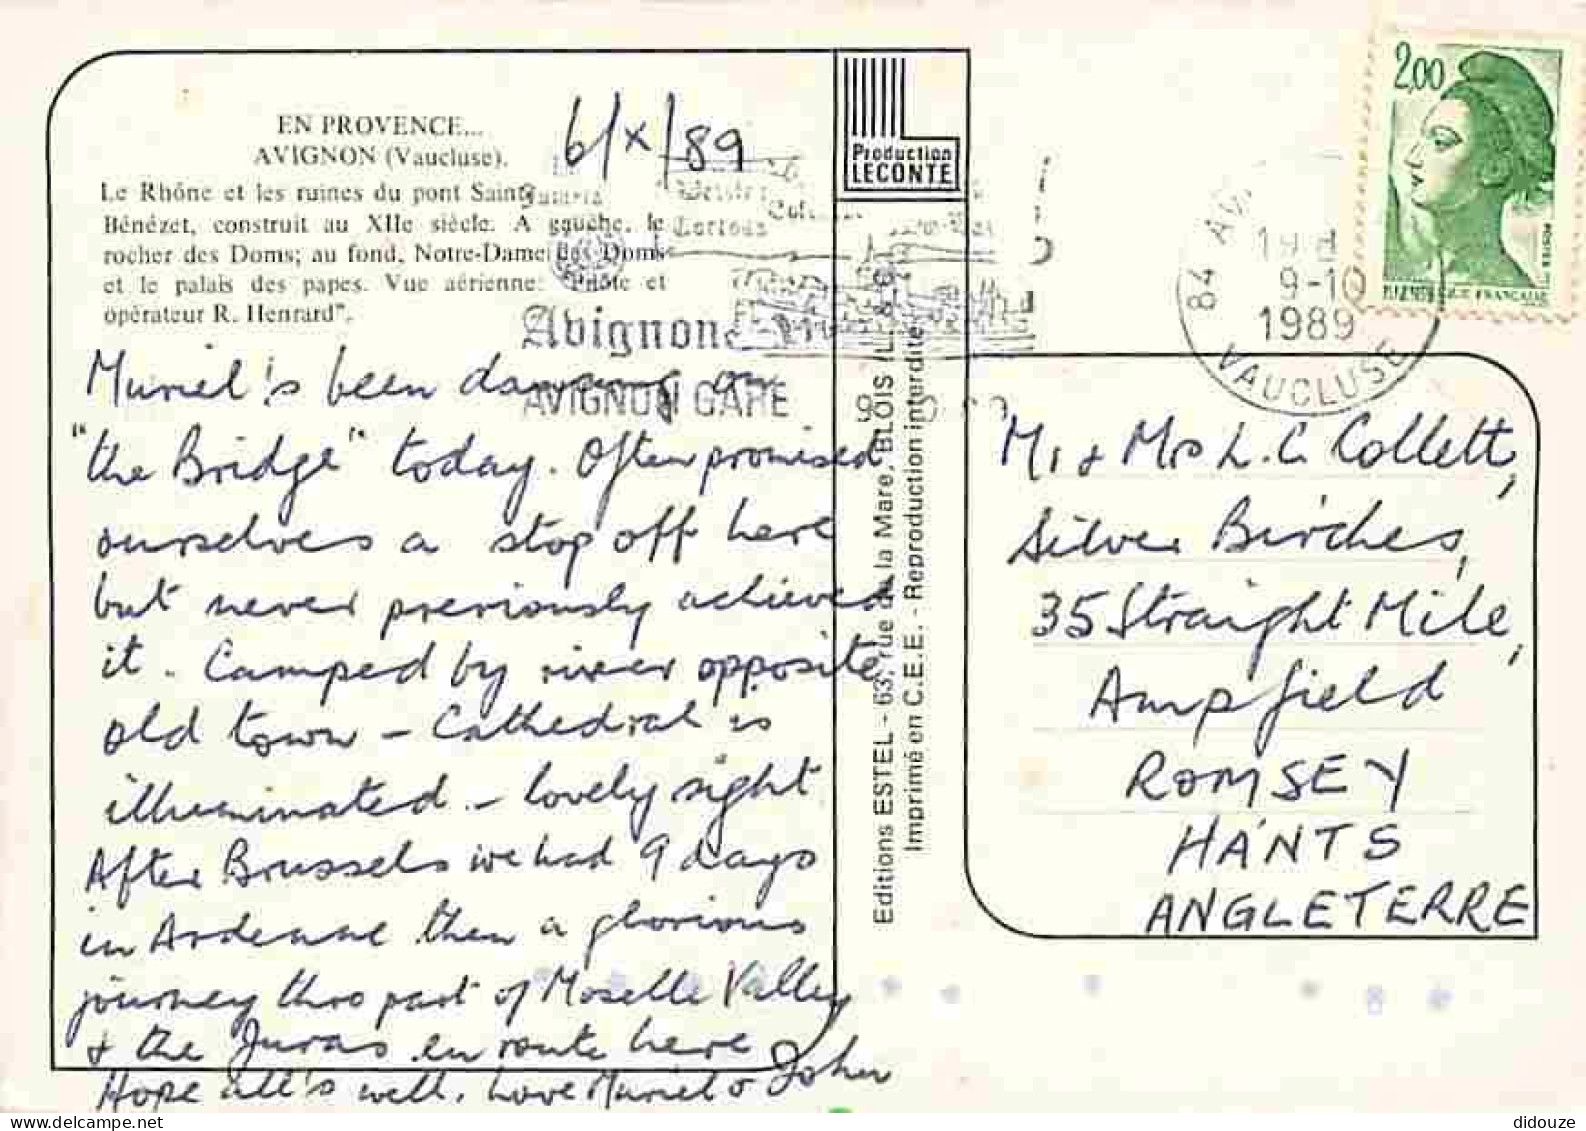 EN PROVENCE...
AVIGNON (Vaucluse).
Le Rhône et les ruines du pont Saint-
Bénézet, construit au XIIe siècle. A gauche, le
rocher des Doms; au fond, Notre-Dame des Doms
et le palais des papes. Vue aérienne: "Pilote et
opérateur R. Henrard".
6/X/89
Muriel's been dancing on
"the Bridge" today. Often promised
ourselves a stop off here
but never previously achieved
it. Camped by river opposite
old town – Cathedral is
illuminated – lovely sight
After Brussels we had 9 days
in Ardenne then a glorious
journey thro part of Moselle Valley
& the Juras en route here
Hope all's well. Love Muriel & John
Production
LECONTE
Editions ESTEL - 63, rue de la Mare, BLOIS (L. & C.)
Imprimé en C.E.E. - Reproduction interdite
Avignon
AVIGNON GARE
84 AVI
9-10
1989
VAUCLUSE
2,00
POSTES
REPUBLIQUE FRANÇAISE
Mr & Mrs L. C. Collett,
Silver Birches,
35 Straight Mile,
Ampfield
ROMSEY
HANTS
ANGLETERRE
didouze